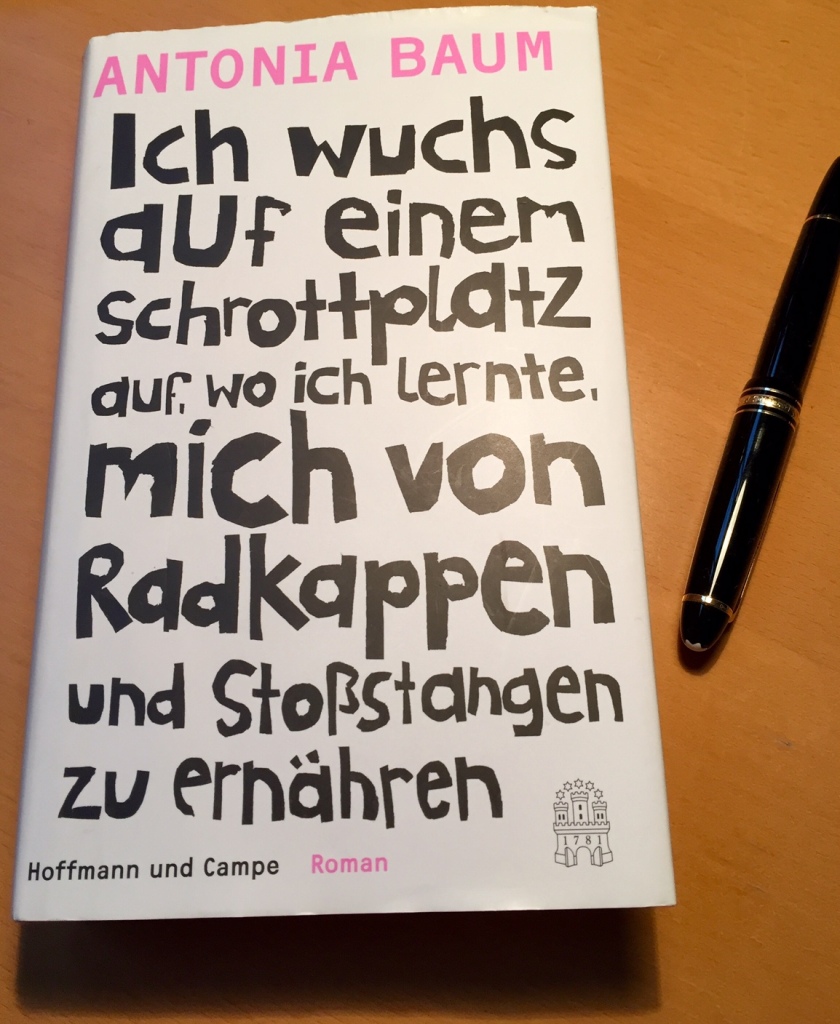 ANTONIA BAUM
Ich wuchs
auf einem
schrottplatz
auf, wo ich lernte,
mich von
Radkappen
und Stoßstangen
zu ernähren
1781
Hoffmann und Campe Roman